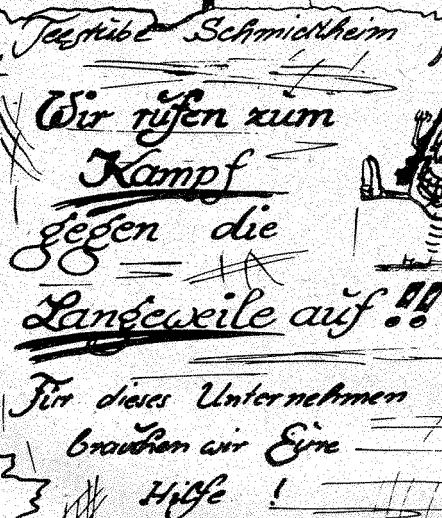 Teestube Schmidtheim
Wir rufen zum
Kampf
gegen die
Langeweile auf !!
Für dieses Unternehmen
brauchen wir Eure
Hilfe !